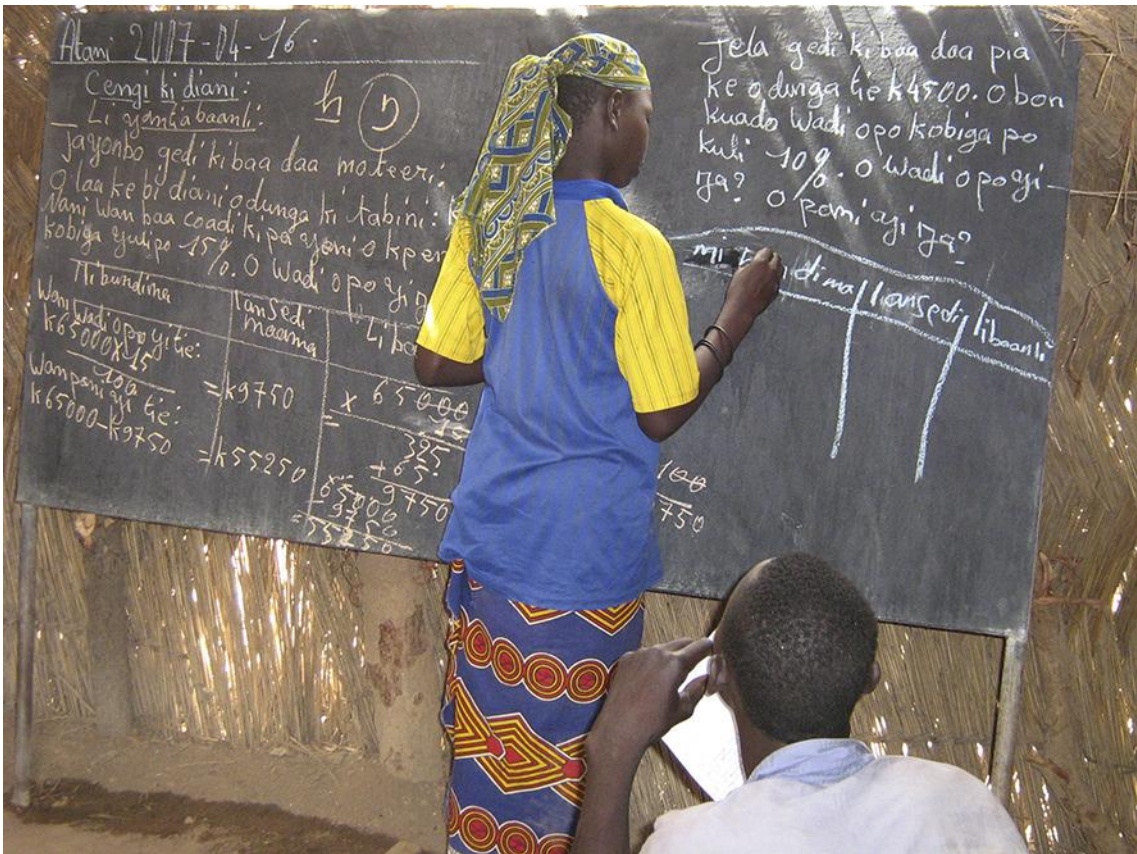 Atani 2007-04-16.
Cengi ki diani:
Li yantabaanli:
Jayonbo gedi ki baa daa moteeri.
O laa ke bi diani o dunga ki tabini:
Nani wan baa coadi ki pa yeni o
kobiga yulipo 15%. O wadi opo yi
Ti bundima
lansedi
maama
Wan wadi opo yi tie:
k65000 x 15
100
= k9750
Wan pani yi tie:
k65000-k9750
= k55250
x 65000
15
325
+ 65.
9750
65000
- 9750
= 55250
100
750
Jela gedi ki baa daa pia
ke o dunga tie k4500. O bon
kuado wadi opo kobiga po
kuli 10%. O wadi opo yi-
ŋa? O pani yi ŋa?
lansedi
li baanli